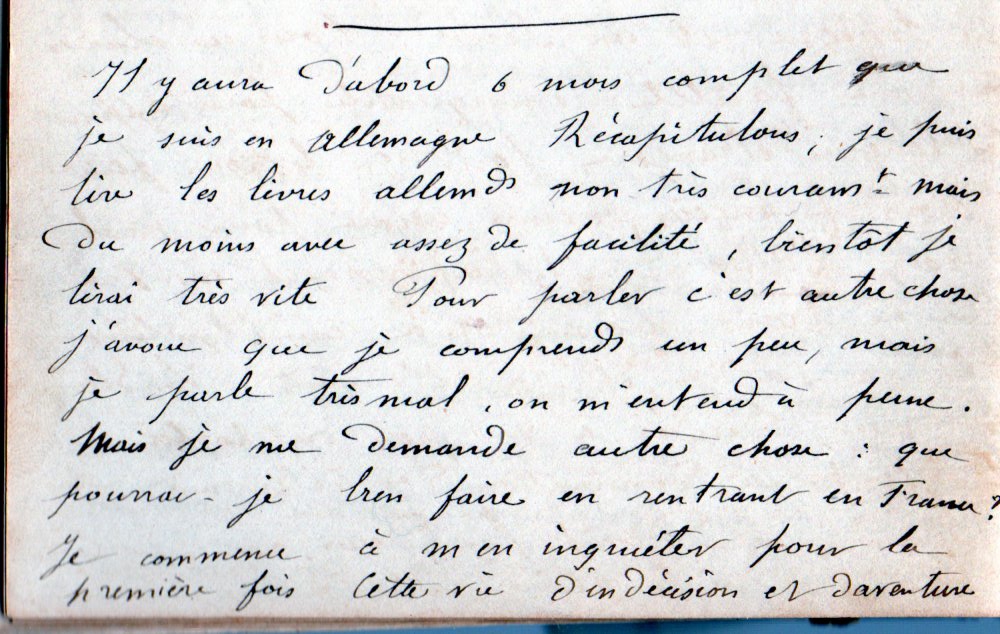 Il y aura d'abord 6 mois complet que
je suis en Allemagne Récapitulons, je puis
lire les livres allemds non très couramt mais
du moins avec assez de facilité, bientôt je
lirai très vite Pour parler c'est autre chose
j'avoue que je comprends un peu, mais
je parle très mal, on m'entend à peine.
Mais je me demande autre chose : que
pourrai-je bien faire en rentrant en France?
Je commence à m'en inquiéter pour la
première fois Cette vie d'indécision et d'aventure